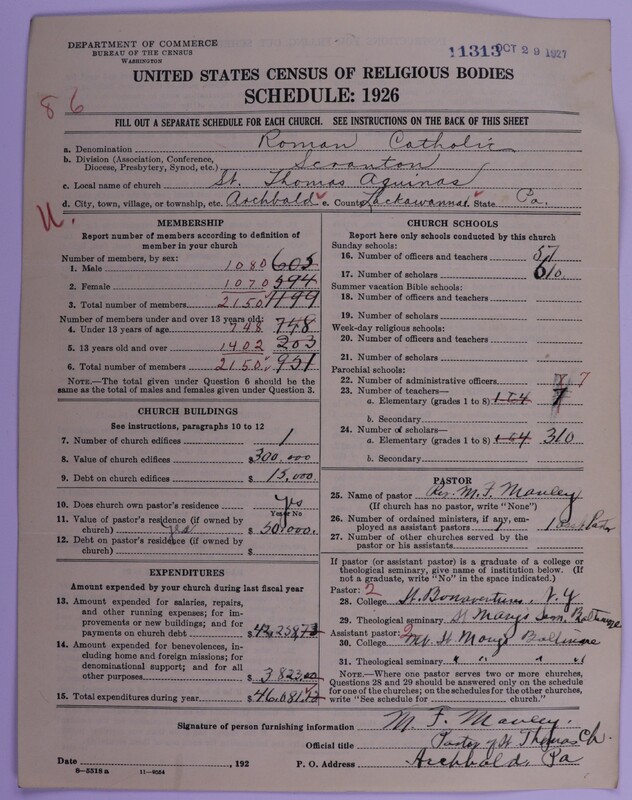 DEPARTMENT OF COMMERCE
BUREAU OF THE CENSUS
WASHINGTON
11313 OCT 29 1927
UNITED STATES CENSUS OF RELIGIOUS BODIES
SCHEDULE: 1926
86
FILL OUT A SEPARATE SCHEDULE FOR EACH CHURCH. SEE INSTRUCTIONS ON THE BACK OF THIS SHEET
a. Denomination Roman Catholic
b. Division (Association, Conference,
Diocese, Presbytery, Synod, etc.) Scranton
c. Local name of church St. Thomas Aquinas
d. City, town, village, or township, etc. Archbald e. County Lackawanna State Pa.
U.
MEMBERSHIP
Report number of members according to definition of
member in your church
Number of members, by sex:
1. Male 1080 605
2. Female 1070 594
3. Total number of members 2150 1199
Number of members under and over 13 years old:
4. Under 13 years of age 748 748
5. 13 years old and over 1402 203
6. Total number of members 2150 951
NOTE.—The total given under Question 6 should be
same as the total of males and females given under Question 3.
CHURCH BUILDINGS
See instructions, paragraphs 10 to 12
7. Number of church edifices 1
8. Value of church edifices $300,000
9. Debt on church edifices $15,000
10. Does church own pastor's residence yes
Yes or No
11. Value of pastor's residence (if owned by
church) yes $ 50,000.
12. Debt on pastor's residence (if owned by
church) $
EXPENDITURES
Amount expended by your church during last fiscal year
13. Amount expended for salaries, repairs,
and other running expenses; for im-
provements or new buildings; and for
payments on church debt $
14. Amount expended for benevolences, in-
cluding home and foreign missions; for
denominational support; and for all
other purposes $ 3823.00
15. Total expenditures during year $
CHURCH SCHOOLS
Report here only schools conducted by this church
Sunday schools:
16. Number of officers and teachers 57
17. Number of scholars 610
Summer vacation Bible schools:
18. Number of officers and teachers
19. Number of scholars
Week-day religious schools:
20. Number of officers and teachers
21. Number of scholars
Parochial schools:
22. Number of administrative officers 7
23. Number of teachers—
a. Elementary (grades 1 to 8) 1 to 4 7
b. Secondary
24. Number of scholars—
a. Elementary (grades 1 to 8) 1 to 4 310
b. Secondary
PASTOR
25. Name of pastor Rev. M. F. Manley
(If church has no pastor, write "None")
26. Number of ordained ministers, if any, em-
ployed as assistant pastors 1
27. Number of other churches served by the
pastor or his assistants
If pastor (or assistant pastor) is a graduate of a college or
theological seminary, give name of institution below. (If
not a graduate, write "No" in the space indicated.)
Pastor: 2
28. College St. Bonaventure N.Y
29. Theological seminary St Marys Sem. Baltimore
Assistant pastor: 2
30. College Mt St Marys Baltimore
31. Theological seminary " " " "
NOTE.—Where one pastor serves two or more churches,
Questions 28 and 29 should be answered only on the schedule
for one of the churches; on the schedules for the other churches,
write "See schedule for church."
Signature of person furnishing information M. F. Manley.
Official title Pastor of St Thomas Ch.
Date , 192 P. O. Address Archbald, Pa
8—5518 a 11—9054